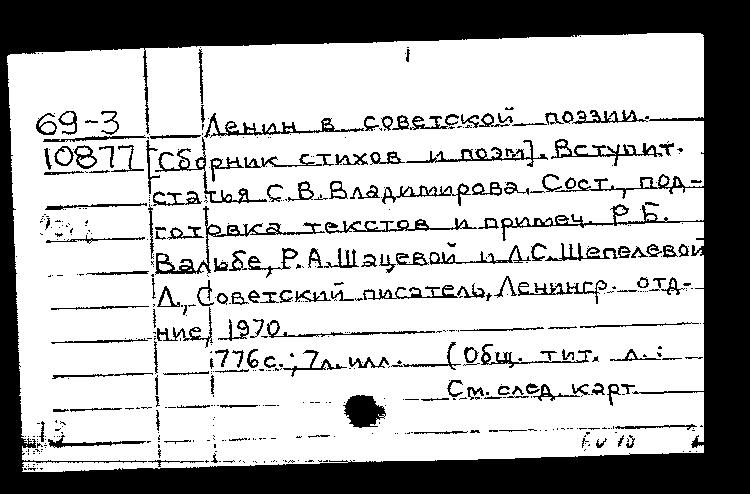 69-3 Ленин в советской поэзии.
10877 [Сборник стихов и поэм]. Вступит.
статья С.В.Владимирова. Сост., под-
готовка текстов и примеч. Р.Б.
Вальбе, Р.А.Шацевой и Л.С.Шепелевой
Л., Советский писатель, Ленингр. отд-
ние, 1970.
776с.; 7л. илл. (Общ. тит. л.:
См. след. карт.
13